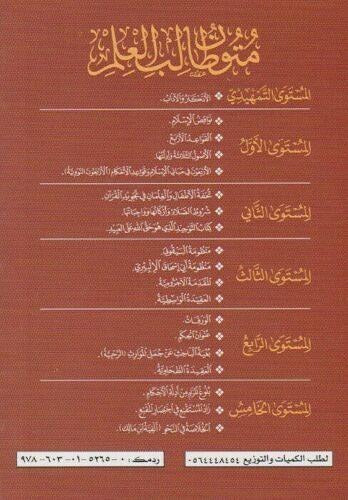 متون طالب العلم
المستوى التمهيدي
❖ الأذكار والآداب.
المستوى الأول
❖ نواقض الإسلام.
❖ القواعد الأربع.
❖ الأصول الثلاثة وأدلتها.
❖ الأربعون في مباني الإسلام وقواعد الأحكام (الأربعون النووية).
المستوى الثاني
❖ تحفة الأطفال والغلمان في تجويد القرآن.
❖ شروط الصلاة وأركانها وواجباتها.
❖ كتاب التوحيد الذي هو حق الله على العبيد.
المستوى الثالث
❖ منظومة البيقوني.
❖ منظومة أبي إسحاق الإلبيري.
❖ المقدمة الآجرومية.
❖ العقيدة الواسطية.
المستوى الرابع
❖ الورقات.
❖ عنوان الحكم.
❖ بغية الباحث عن جمل الموارث (الرحبية).
❖ العقيدة الطحاوية.
المستوى الخامس
❖ بلوغ المرام من أدلة الأحكام.
❖ زاد المستقنع في اختصار المقنع.
❖ الخلاصة في النحو (ألفية ابن مالك).
لطلب الكميات والتوزيع ٠٥٦٤٤٤٨٤٥٤
ردمك: ٠-٥٢٦٥-٠١-٦٠٣-٩٧٨